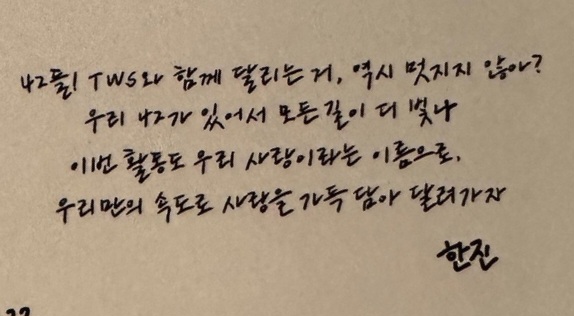 42들! TWS와 함께 달리는 거, 역시 멋지지 않아?
우리 42가 있어서 모든길이 더 빛나
이번 활동도 우리 사랑이라는 이름으로,
우리만의 속도로 사랑을 가득 담아 달려가자
한진